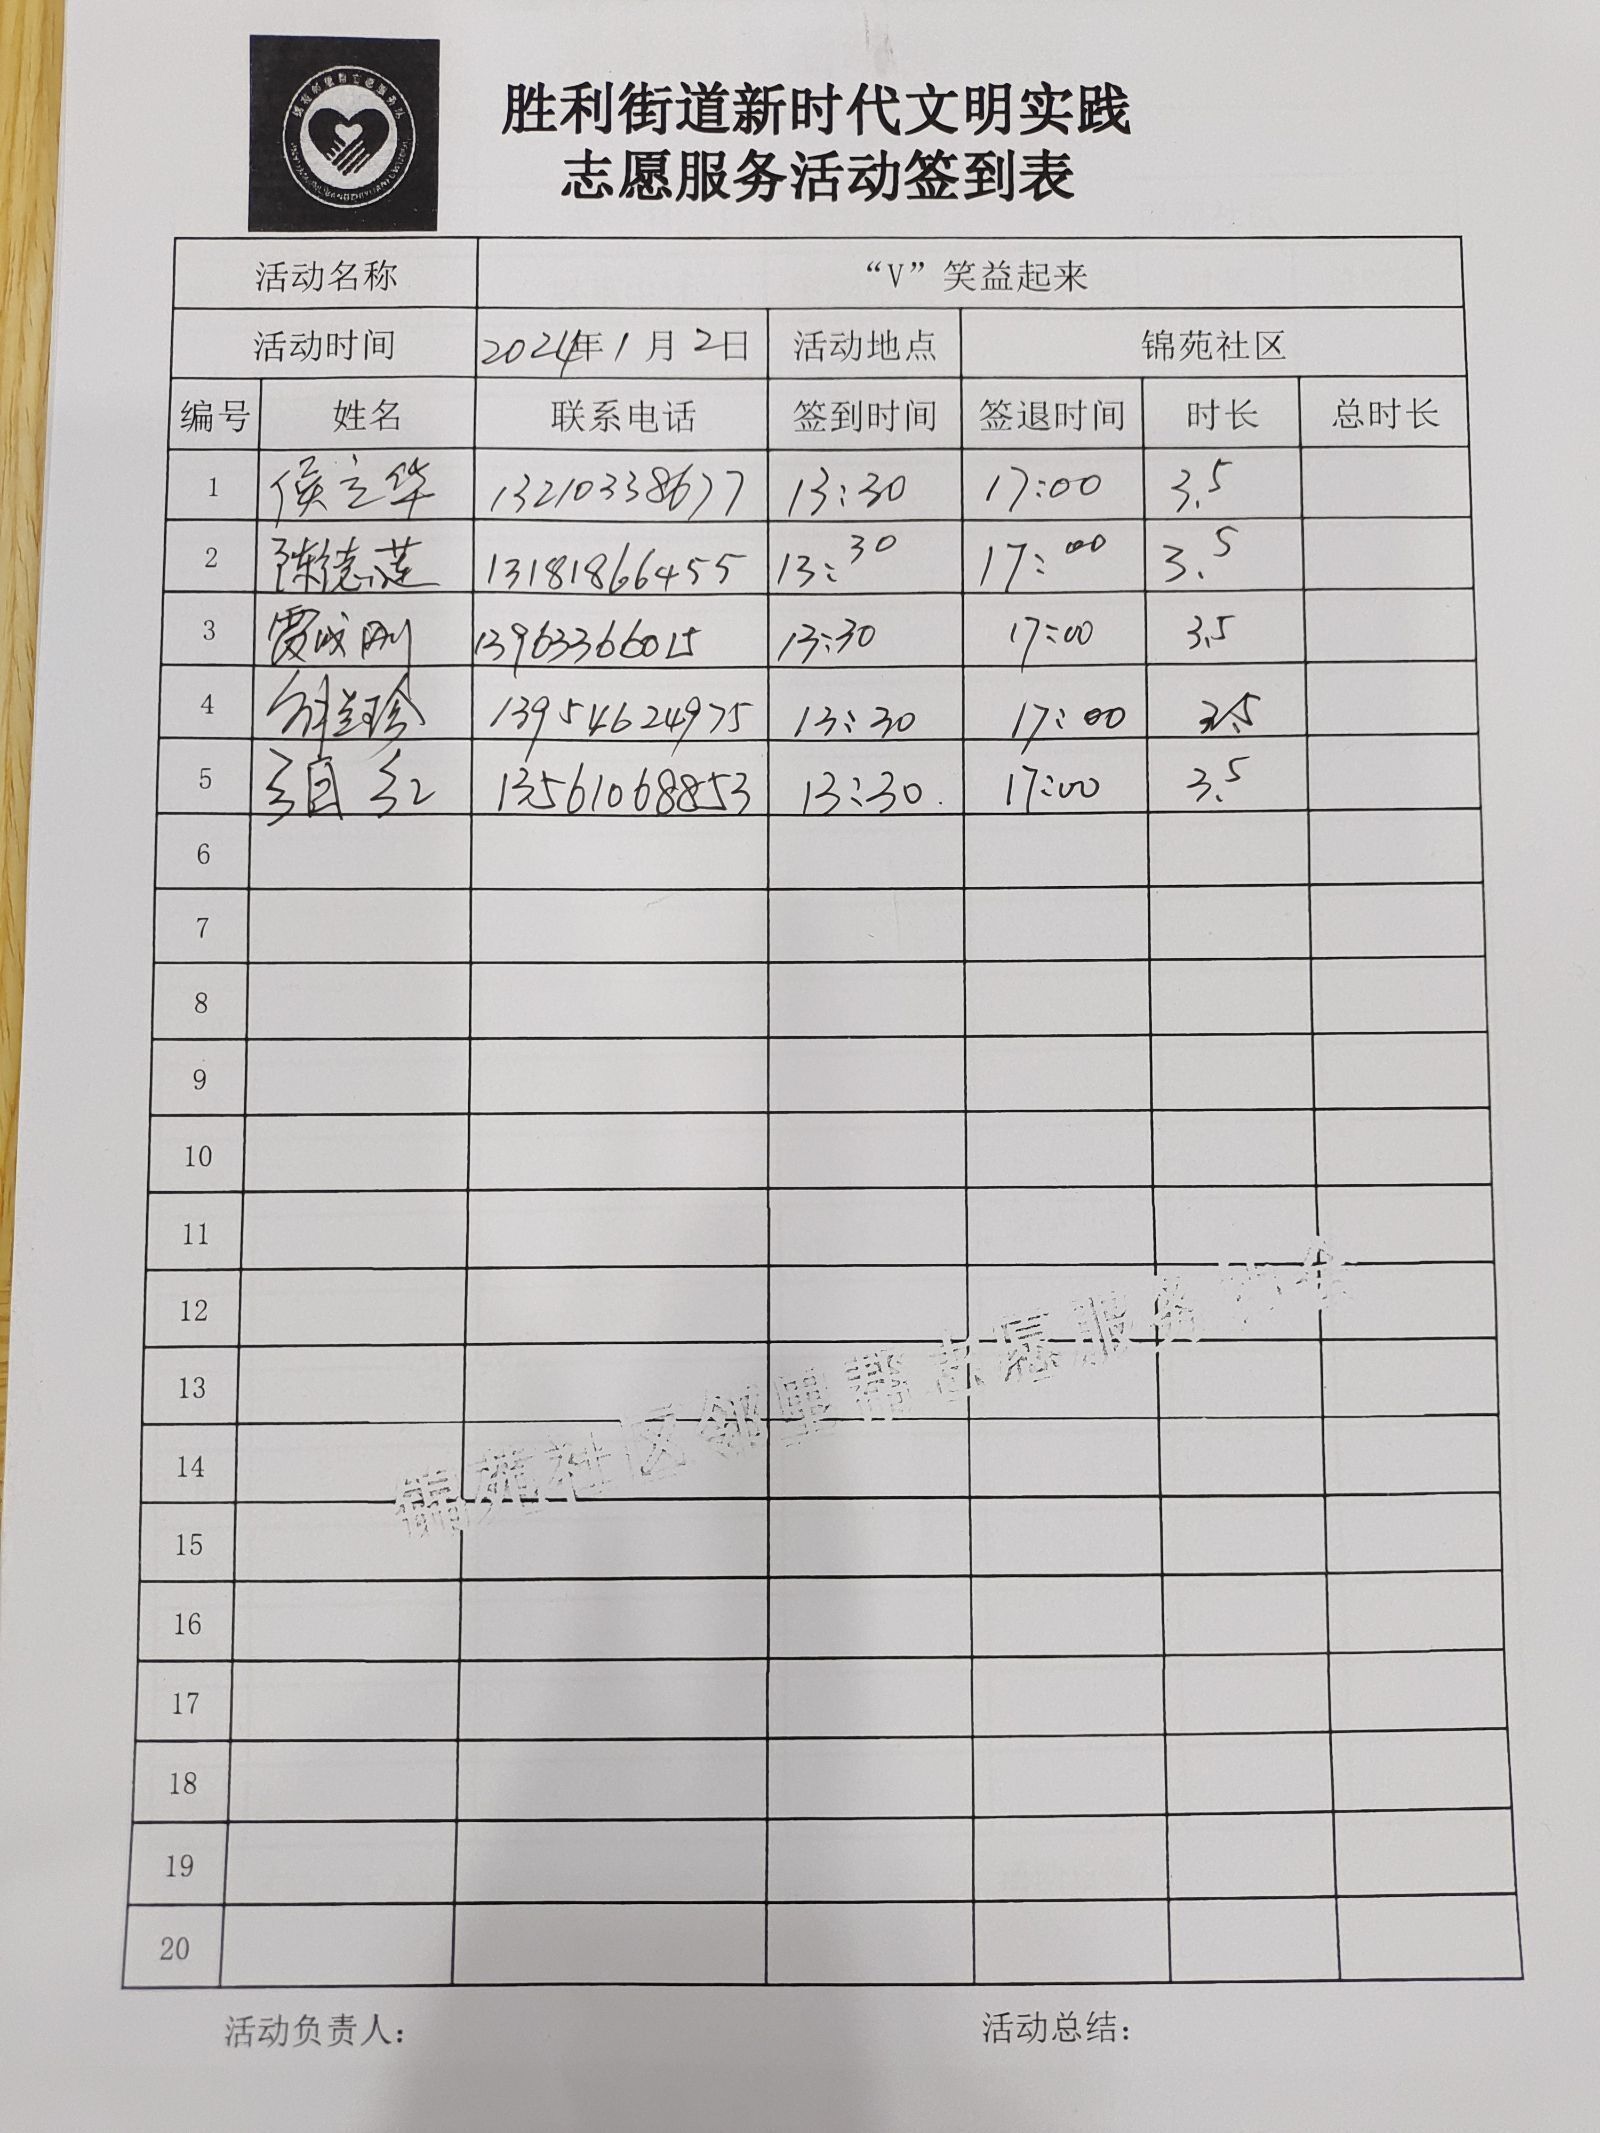 胜利街道新时代文明实践
志愿服务活动签到表
活动名称 “V”笑益起来
活动时间 2024年1月2日 活动地点 锦苑社区
编号 姓名 联系电话 签到时间 签退时间 时长 总时长
1 侯立华 13210338677 13:30 17:00 3.5
2 陈德莲 13181866455 13:30 17:00 3.5
3 贾成刚 13963366015 13:30 17:00 3.5
4 珍 13954624975 13:30 17:00 3.5
5 红 13561068853 13:30 17:00 3.5
6
7
8
9
10
11
12
13
14
15
16
17
18
19
20
锦苑社区邻里帮志愿服务协会
活动负责人： 活动总结：